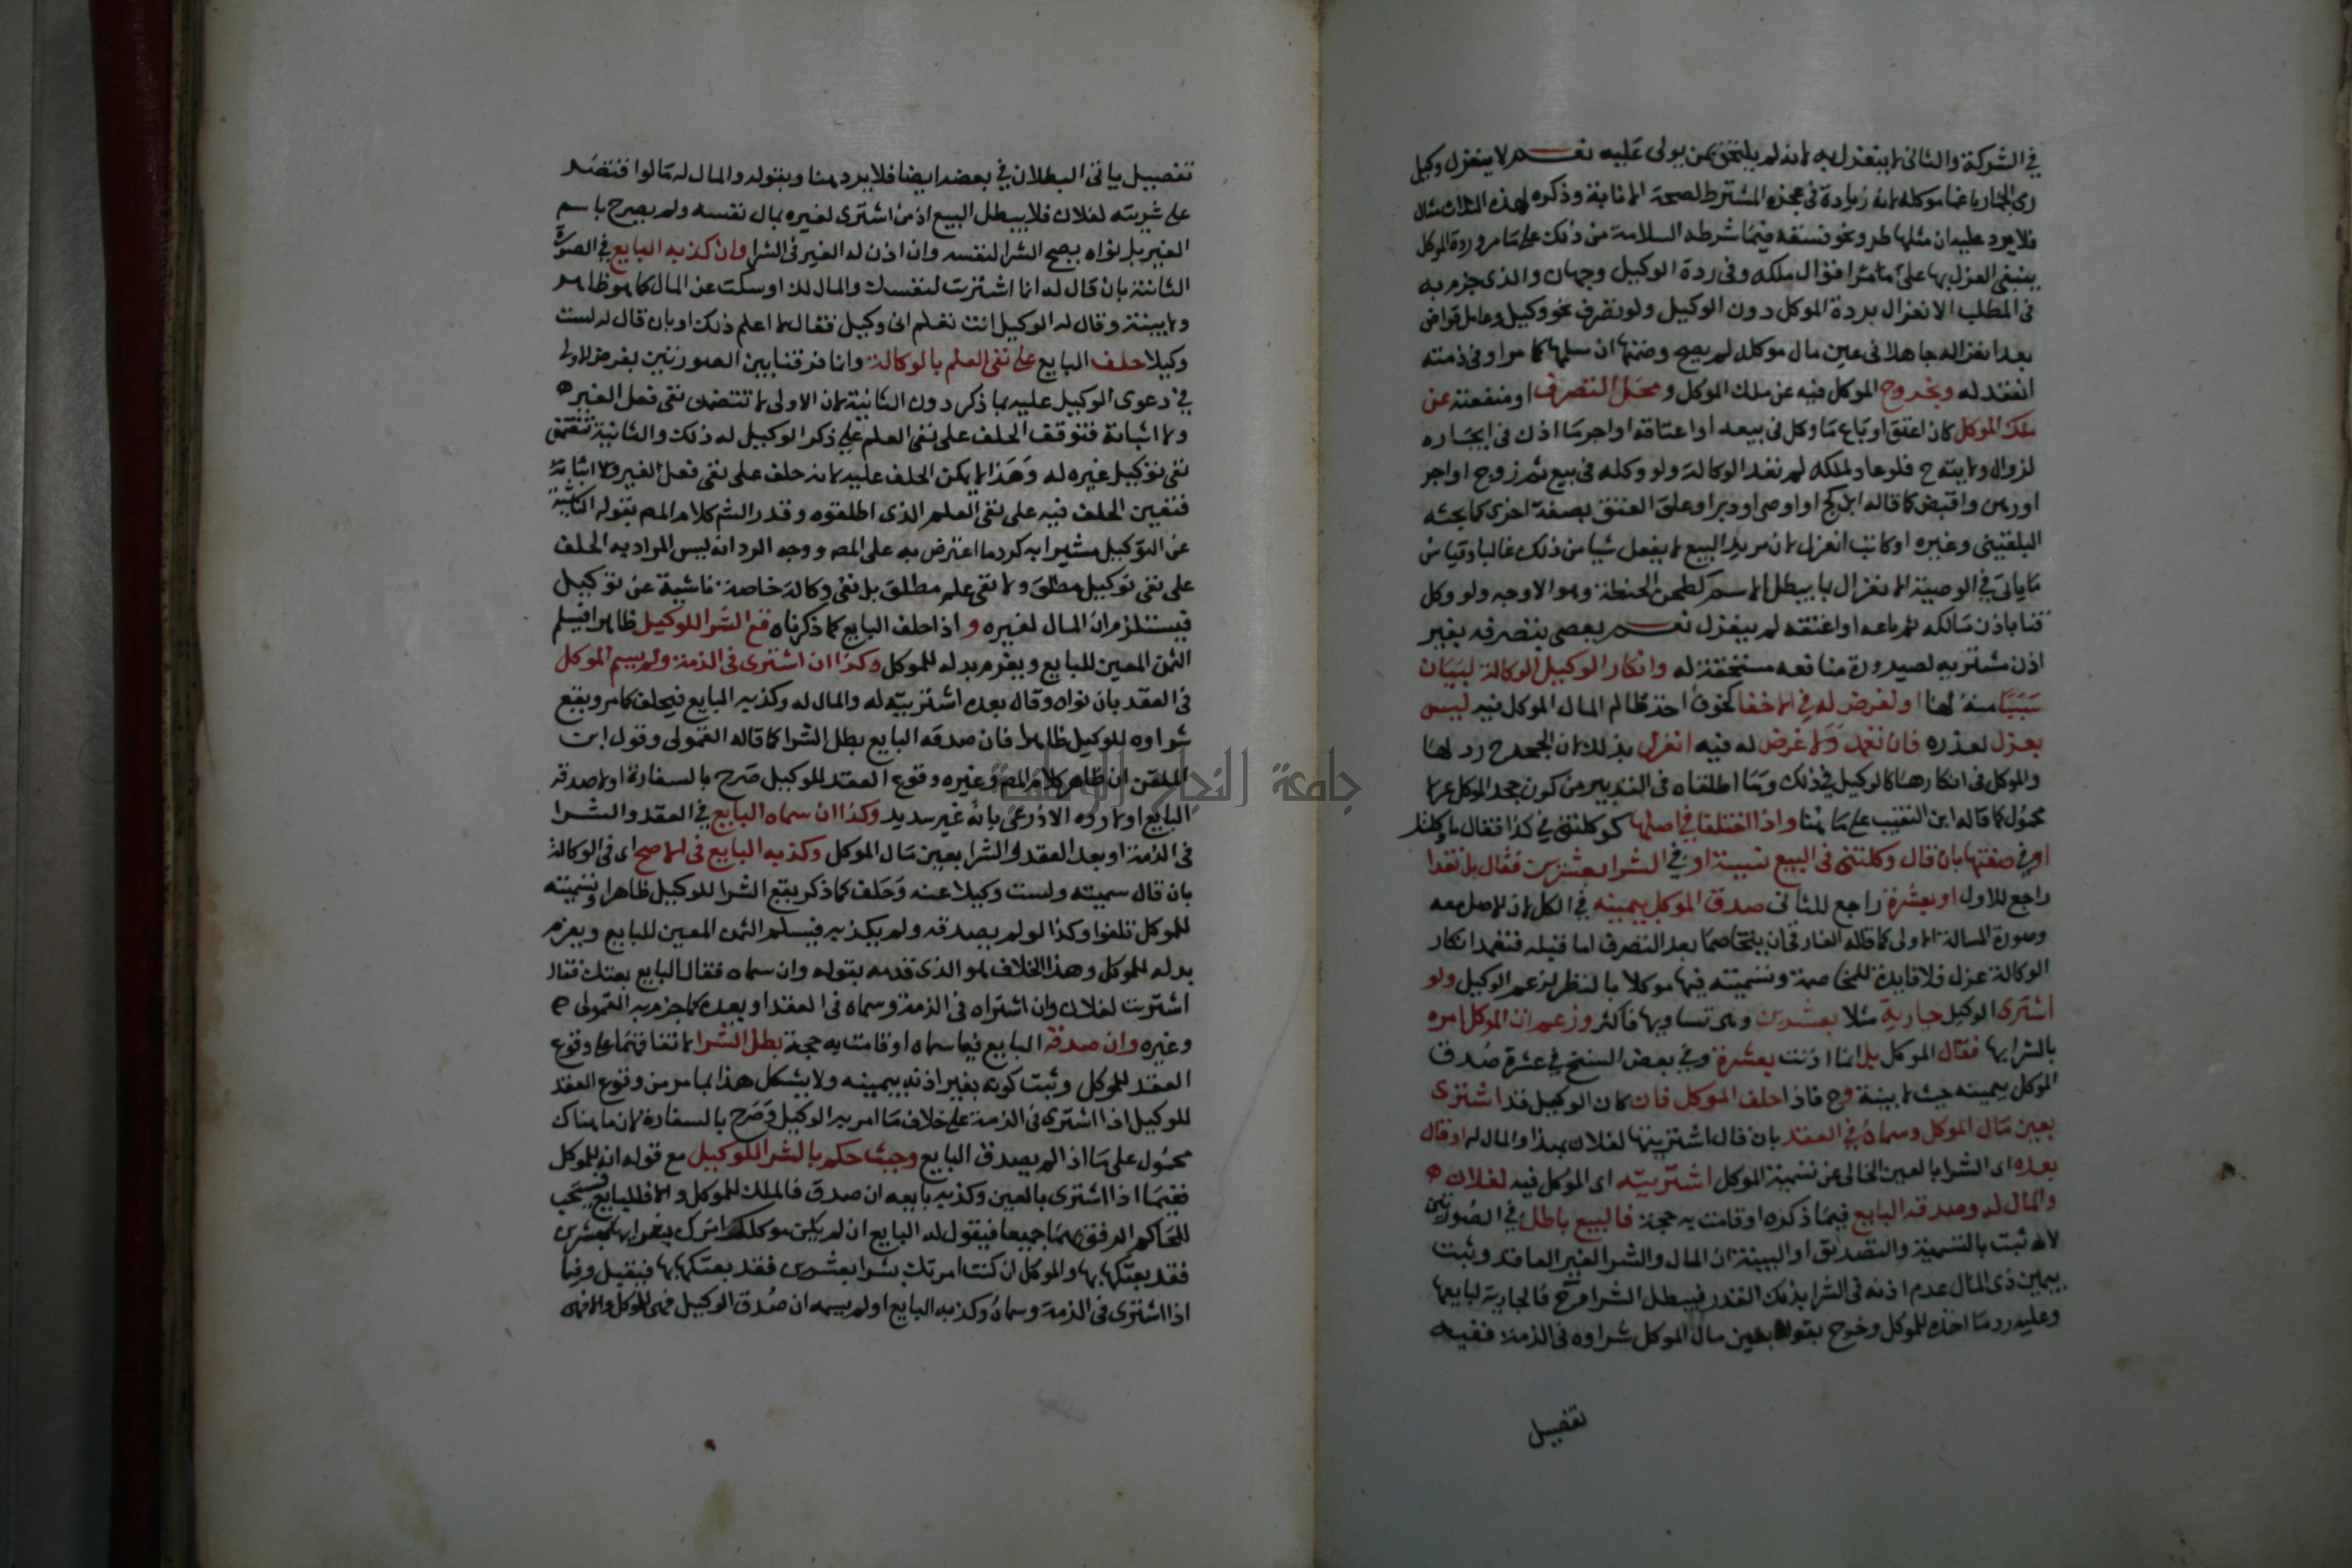 في الشركة والثاني لا ينعزل به لانه لم يلتحق بمن يولى عليه نعم لا ينعزل وكيل
رمى الجمار باغما موكله لانه زيادة في عجزه المشترط لصحة الانابة وذكره لهذه الثلاث مثال
فلا يرد عليه ان مثلها طرو نحو فسقه فيما شرطه السلامة من ذلك على ما مر وردة الموكل
ينبنى العزل بها على ما مر في اقوال ملكه وفى ردة الوكيل وجهان والذى جزم به
فى المطلب الانعزال بردة الموكل دون الوكيل ولو تصرف نحو وكيل وعامل قراض
بعد انعزاله جاهلا فى عين مال موكله لم يصح وضمنها ان سلمها كما مر او فى ذمته
انعقد له وبخروج الموكل فيه عن ملك الموكل و محل التصرف او منفعته عن
ملك الموكل كان اعتق او باع ما وكل فى بيعه او اعتاقه او اجر ما اذن فى ايجاره
لزوال ولايته ح فلو عاد لملكه لم تعد الوكالة ولو وكله فى بيع ثم زوج او اجر
او رهن واقبض كما قاله ابن كج او اوصى او دبر او علق العتق بصفة اخرى كما بحثه
البلقينى وغيره او كاتب انعزل لان مريد البيع لا يفعل شيا من ذلك غالبا وقياس
ما ياتى في الوصية الانعزال بما يبطل الاسم كطحن الحنطة وهو الاوجه ولو وكل
قنا باذن مالكه ثم باعه او اعتقه لم ينعزل نعم يعصى بتصرفه بغير
اذن مشتريه لصيرورة منافعه مستحقة له وانكار الوكيل الوكالة لنسيان
منه لها او لغرض له في الاخفا كخوف اخذ ظالم المال الموكل فيه ليس
بعزل لعذره فان تعمد ولا غرض له فيه انعزل بذلك لان الجحد ح رد لها
والموكل فى انكارها كالوكيل في ذلك وما اطلقناه فى التدبير من كون جحد الموكل عزلا
محمول كما قاله ابن النقيب على ما هنا واذا اختلفا في اصلها كوكلتنى في كذا فقال ما وكلتك
او في صفتها بان قال وكلتنى فى البيع نسيئة او في الشرا بعشرين فقال بل نقدا
راجع للاول او بعشرة راجع للثانى صدق الموكل بيمينه في الكل لان الاصل معه
وصورة المسالة الاولى كما قاله الفارقى ان يتخاصما بعد التصرف اما قبله فتعمد انكار
الوكالة عزل فلا فايدة للمخاصمة وتسميته فيها موكلا بالنظر لزعم الوكيل ولو
اشترى الوكيل جارية مثلا بعشرين وهى تساويها فاكثر وزعم ان الموكل امره
بالشرا بها فقال الموكل بل انما اذنت بعشرة وفي بعض النسخ في عشرة صدق
الموكل بيمينه حيث لا بينة وح فاذا حلف الموكل فان كان الوكيل قد اشترى
بعين مال الموكل وسماه في العقد بان قال اشتريتها لفلان بهذا والمال له او قال
بعده اى الشرا بالعين الخالى عن تسمية الموكل اشتريته اى الموكل فيه لفلان
والمال له وصدقه البايع فيما ذكره او قامت به حجة فالبيع باطل في الصورتين
لانه ثبت بالتسمية والتصديق او البينة ان المال والشرا لغير العاقد وثبت
بيمين ذى المال عدم اذنه فى الشرا بذلك القدر فيبطل الشرا وح فالجارية لبايعها
وعليه رد ما اخذه للموكل وخرج بقوله بعين مال الموكل شراوه فى الذمة ففيه
تفصيل
تفصيل ياتى البطلان في بعضه ايضا فلا يرد هنا وبقوله والمال له مالو اقتصر
على شريته لفلان فلا يبطل البيع اذ من اشترى لغيره بمال نفسه ولم يصرح باسم
الغير بل نواه يصح الشرا لنفسه وان اذن له الغير فى الشرا وان كذبه البايع في الصورة
الثانية بان قال له انما اشتريت لنفسك والمال لك او سكت عن المال كما هو ظاهر
ولا بينة وقال له الوكيل انت تعلم انى وكيل فقال لا اعلم ذلك او بان قال له لست
وكيلا حلف البايع على نفى العلم بالوكالة وانما فرقنا بين الصورتين بفرض الاولى
في دعوى الوكيل عليه بما ذكر دون الثانية لان الاولى لا تتضمن نفى فعل الغير
ولا اثباته فتوقف الحلف على نفى العلم على ذكر الوكيل له ذلك والثانية تتضمن
نفى توكيل غيره له وهذا لا يمكن الحلف عليه لانه حلف على نفى فعل الغير ولا اثباته
فتعين الحلف فيه على نفى العلم الذى اطلقوه وقدر الشم كلام المصـ بقوله الناشية
عن التوكيل مشيرا به كرد ما اعترض به على المصـ ووجه الرد انه ليس المراد به الحلف
على نفى توكيل مطلق ولا نفى علم مطلق بل نفى وكالة خاصة ناشية عن توكيل
فيستلزم ان المال لغيره و اذا حلف البايع كما ذكرناه وقع الشرا للوكيل ظاهرا فيسلم
الثمن المعين للبايع ويغرم بدله للموكل وكذا ان اشترى فى الذمة ولم يسم الموكل
فى العقد بان نواه وقال بعده اشتريته له والمال له وكذبه البايع فيحلف كما مر ويقع
شراوه للوكيل ظاهرا فان صدقه البايع بطل الشرا كما قاله القمولى وقول ابن
الملقن ان ظاهر كلام المصـ وغيره وقوع العقد للوكيل صرح بالسفارة او لا صدقه
البايع او لا رده الاذرعى بانه غير سديد وكذا ان سماه البايع في العقد والشرا
فى الذمة او بعد العقد والشرا بعين مال الموكل وكذبه البايع فى الاصح اى فى الوكالة
بان قال سميته ولست وكيلا عنه وحلف كما ذكر يقع الشرا للوكيل ظاهرا وتسميته
للموكل تلغوا وكذا لو لم يصدقه ولم يكذبه فيسلم الثمن المعين للبايع ويغرم
بدله للموكل وهذا الخلاف هو الذى قدمه بقوله وان سماه فقال البايع بعتك فقال
اشتريت لفلان وان اشتراه فى الذمة وسماه فى العقد او بعده كما جزم به القمولى
وغيره وان صدقه البايع فيما سماه او قامت به حجة بطل الشرا لاتفاقهما على وقوع
العقد للموكل وثبت كونه بغير اذنه بيمينه ولا يشكل هذا بما مر من وقوع العقد
للوكيل اذا اشترى فى الذمة على خلاف ما امر به الوكيل وصرح بالسفارة لان ما هناك
محمول على ما اذا لم يصدق البايع وحيث حكم بالشرا للوكيل مع قوله انه للموكل
ففيما اذا اشترى بالعين وكذبه بايعه ان صدق فالملك للموكل والا فللبايع فيستحب
للحاكم الرفق بهما جميعا فيقول له البايع ان لم يكن موكلك امرك بشرايها بعشرين
فقد بعتكها بها والموكل ان كنت امرتك بشرا بعشرين فقد بعتكها بها فيقبل وفيما
اذا اشترى فى الذمة وسماه وكذبه البايع او لم يسمه ان صدق الوكيل فهى للموكل والا فهى
جامعة النجاح الوطنية